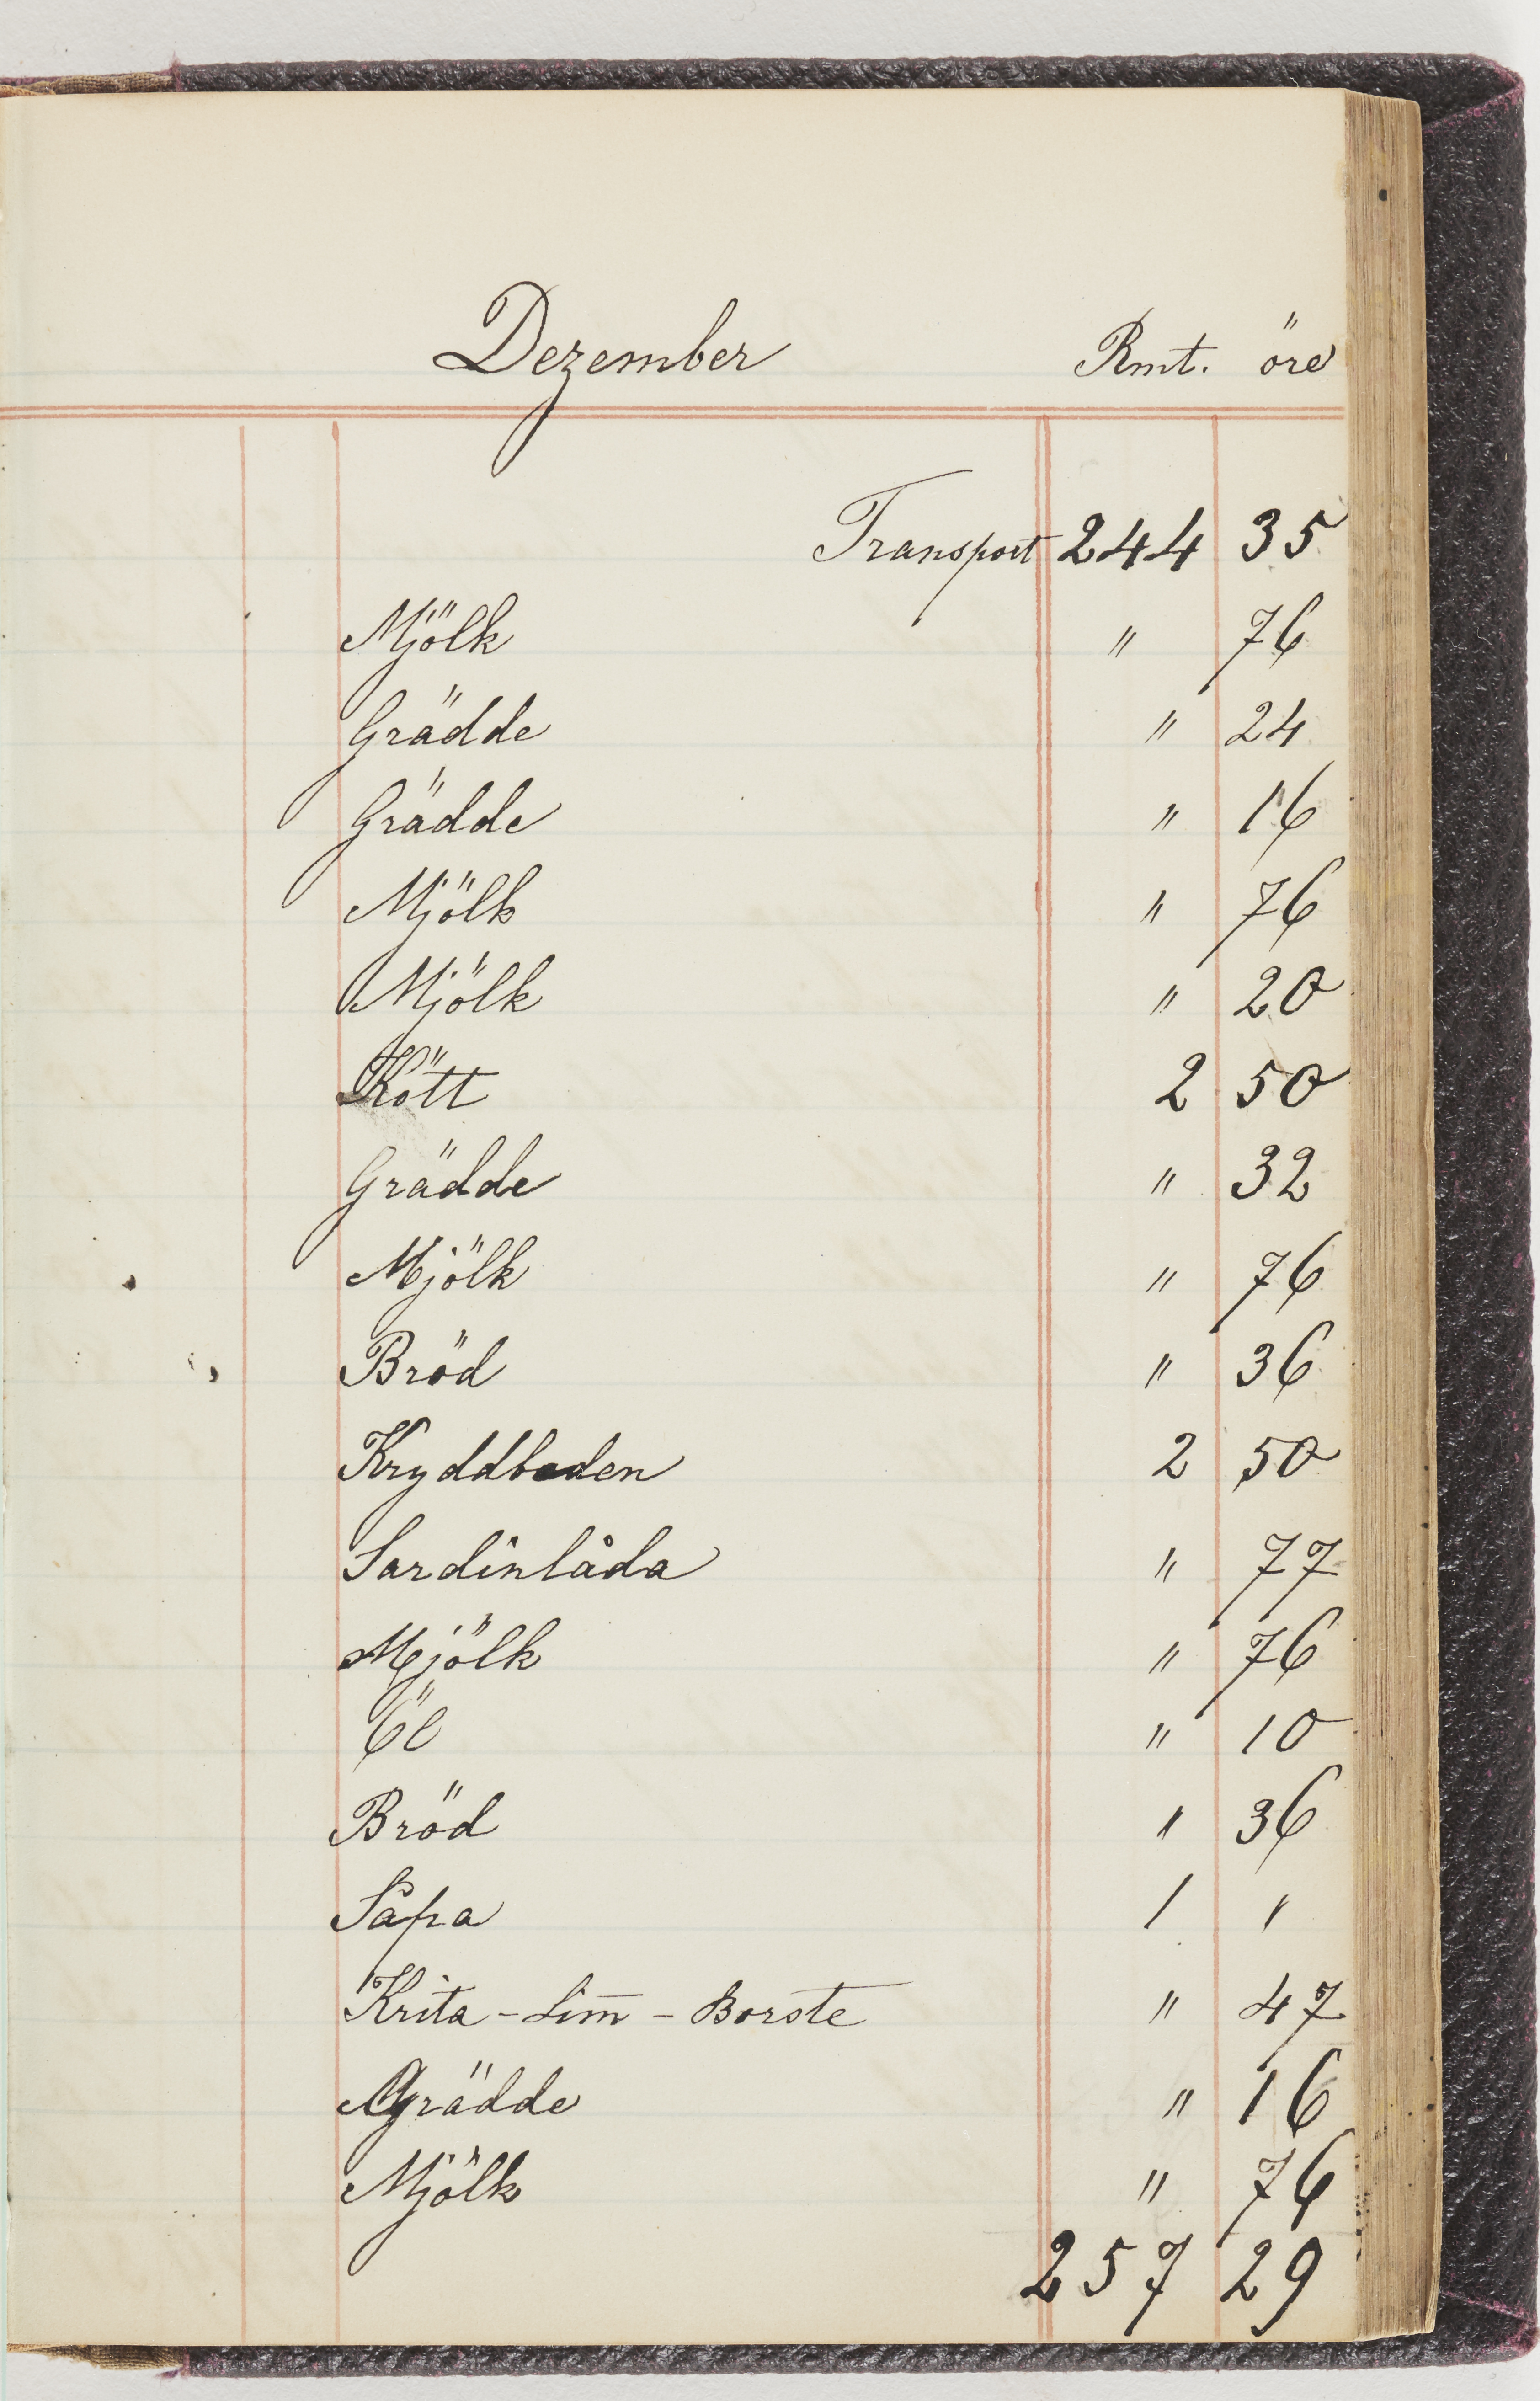 Dezember Rmt. öre
Transport 244 35
Mjölk " 76
Grädde " 24
Grädde " 16
Mjölk " 76
Mjölk " 20
Kött 2 50
Grädde " 32
Mjölk " 76
Bröd " 36
Kryddboden 2 50
Sardinlåda " 77
Mjölk " 76
Öl " 10
Bröd " 36
Såpa 1 "
Krita - Lim - Borste " 47
Grädde " 16
Mjölk " 76
257 29